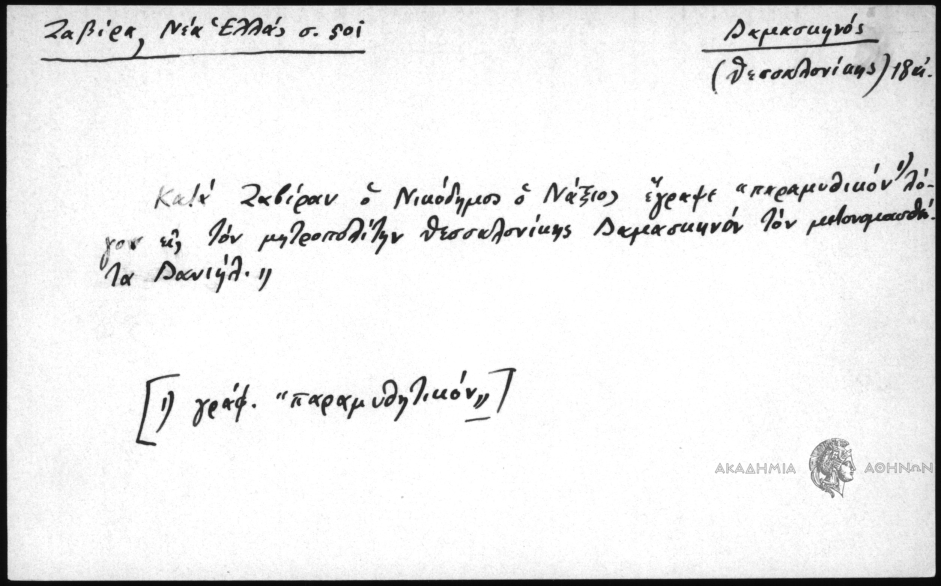 Ζαβίρα, Νέα Ἑλλάς σ. 501
Δαμασκηνός
(Θεσσαλονίκης) 18 αἰ.
Κατά Ζαβίραν ὁ Νικόδημος ὁ Νάξιος ἔγραψε "παραμυθικόν 1) λό-
γον εἰς τόν μητροπολίτην Θεσσαλονίκης Δαμασκηνόν τόν μετονομασθέ-
τα Δανιήλ."
[1) γράφ. "παραμυθητικόν"]
ΑΚΑΔΗΜΙΑ ΑΘΗΝΩΝ